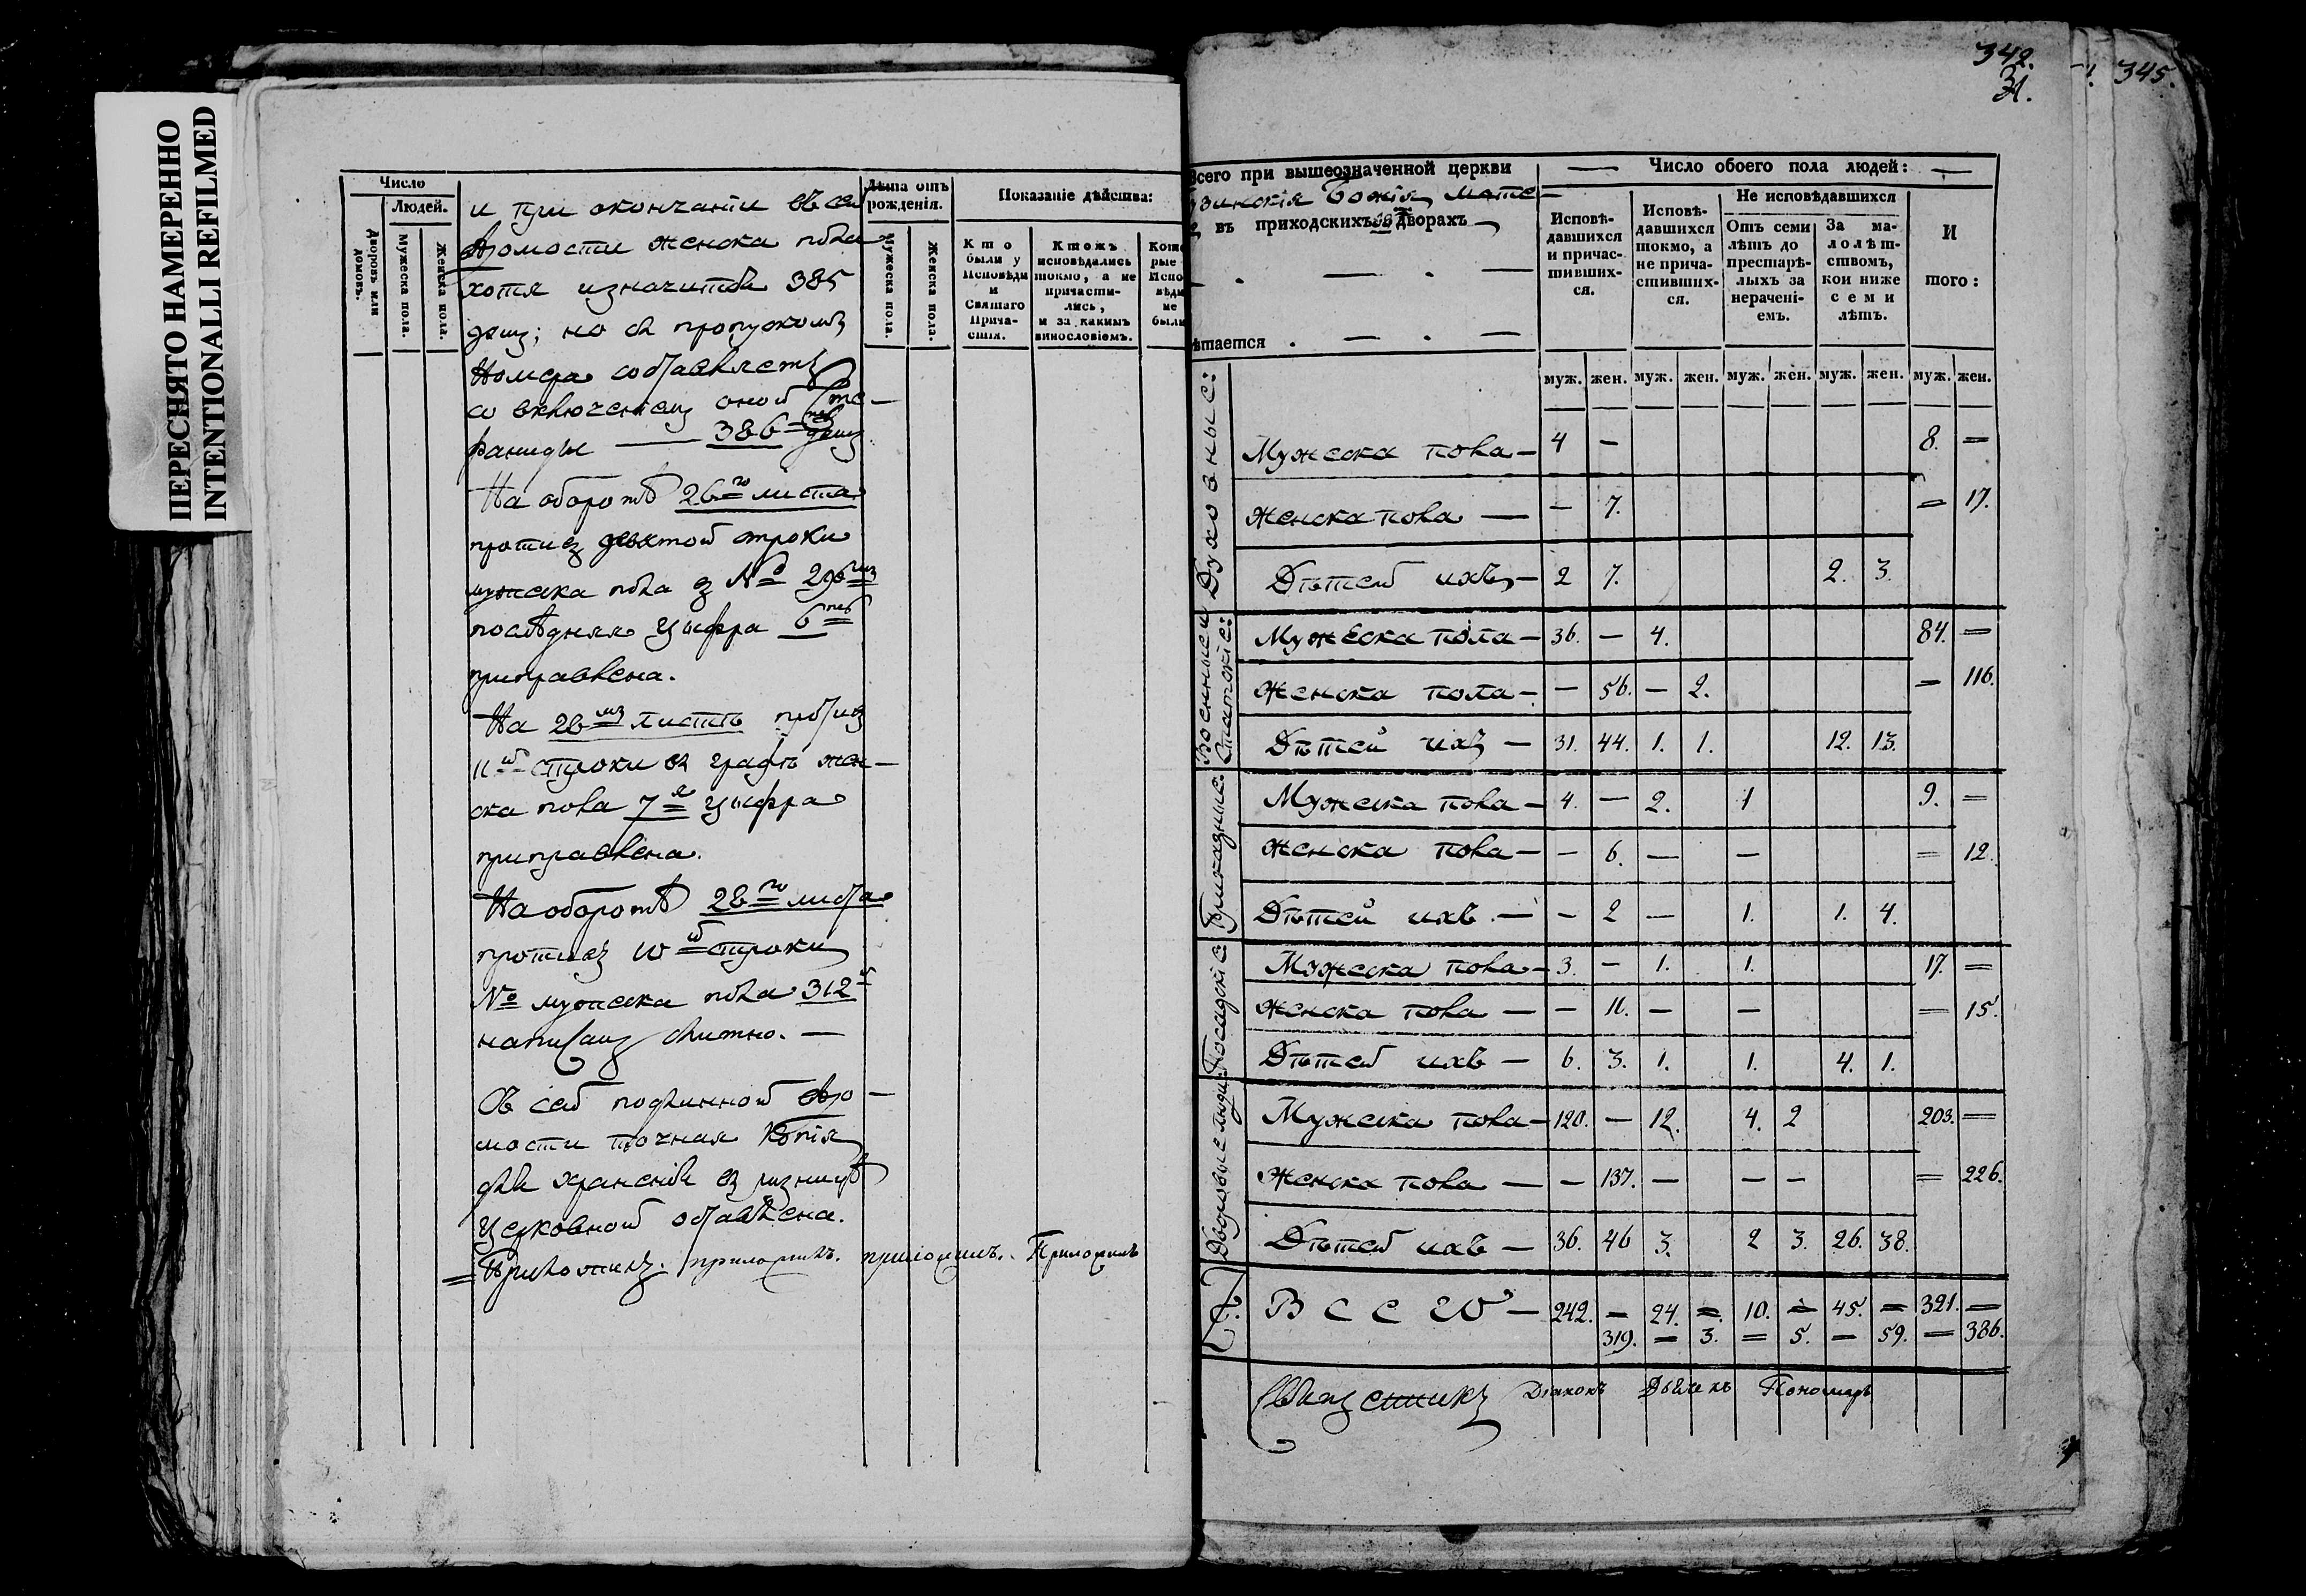 ПЕРЕСНЯТО НАМЕРЕННО
INTENTIONALLI REFILMED
Число
Людей.
Дворовъ или домовъ.
Мужеска пола.
Женска пола.
Лѣта отъ рожденія.
Мужеска пола.
Женска пола.
Показаніе дѣйства:
Кто были у Исповѣди и Святаго Прича- стія.
Ктожъ исповѣдались токмо, а не причасти- лись, и за какимъ винословіемъ.
Кото рые Испо вѣди не были
и при окончаніи въ сей
вѣдомости женска пола
хотя и значится 385
душъ; но съ пропускомъ
Номера составляетъ
со включеніемъ оной Сте-
фаниды — 386ть душъ
На оборотѣ 26го листа
противъ девятой строки
мужеска пола въ № 296мъ
послѣдняя цыфра 6ть
приправлена.
На 28мъ листѣ противъ
11й строки въ графѣ жен-
ска пола 7я цыфра
приправлена.
На оборотѣ 28го листа
противъ 10й строки
№ мужеска пола 312й
написанъ
Съ сей подлинной вѣдо-
мости точная копія
для храненія въ ризницѣ
церковной оставлена.
приложилъ. приложилъ. Приложилъ
342.
31.
345.
Всего при вышеозначенной церкви
Божія мате-
въ приходскихъ дворахъ
ѣтается
Число обоего пола людей:
Исповѣ- давшихся и причас- тивших- ся.
Исповѣ- давшихся токмо, а не прича- стивших- ся.
Не исповѣдавшихся
Отъ семи лѣтъ до престарѣ- лыхъ за нерачені- емъ.
За ма- лолѣт- ствомъ, кои ниже семи лѣтъ.
И того:
муж. жен. муж. жен. муж. жен. муж. жен. муж. жен.
Духовные:
Мужеска пола — 4 — 8. =
Женска пола — — 7. = 17.
Дѣтей ихъ — 2 7. 2. 3.
Военные и Статскіе:
Мужеска пола — 36. — 4. 84. =
Женска пола — — 56. — 2. = 116.
Дѣтей ихъ — 31. 44. 1. 1. 12. 13.
Приказные:
Мужеска пола — 4. — 2. 1 9. =
Женска пола — — 6. — — = 12.
Дѣтей ихъ — — 2 — 1. 1. 4.
Посадскіе
Мужеска пола — 3. — 1. 1. 17. =
Женска пола — — 11. — — = 15.
Дѣтей ихъ — 6. 3. 1. 1. 4. 1.
Дворовые люди:
Мужеска пола — 120. — 12. 4. 2 203. =
Женска пола — — 137. — — — = 226.
Дѣтей ихъ — 36. 46 3. 2 3. 26. 38.
Всего — 242. — 24. = 10. = 45. = 321. =
319. = 3. = 5. — 59. — 386.
Священникъ Діаконъ Дьячекъ Пономарь